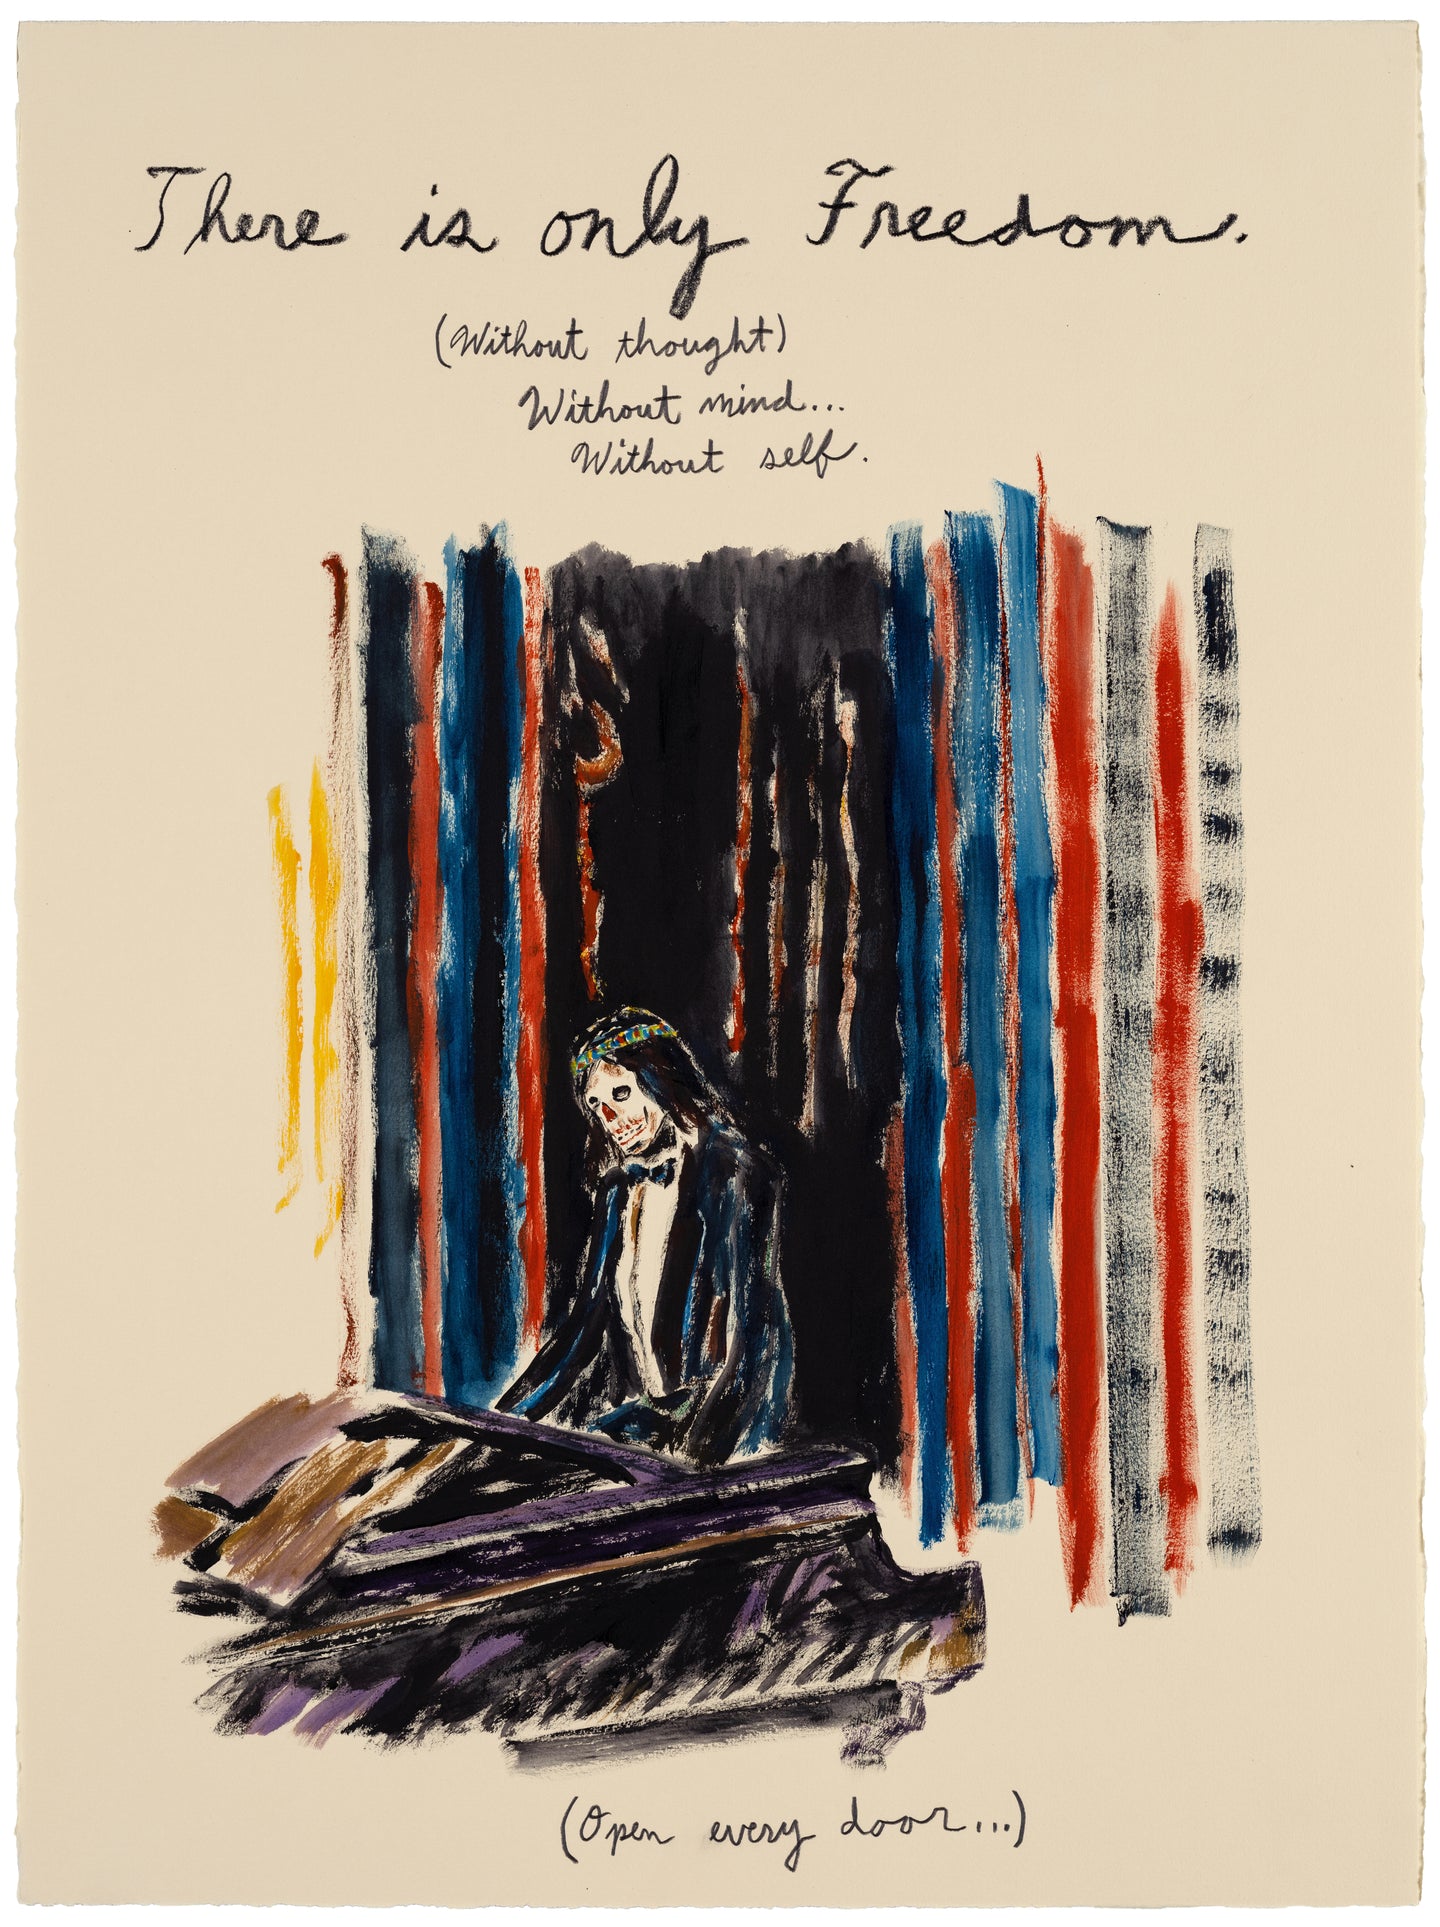 There is only Freedom.
(Without thought)
Without mind...
Without self.
(Open every door...)